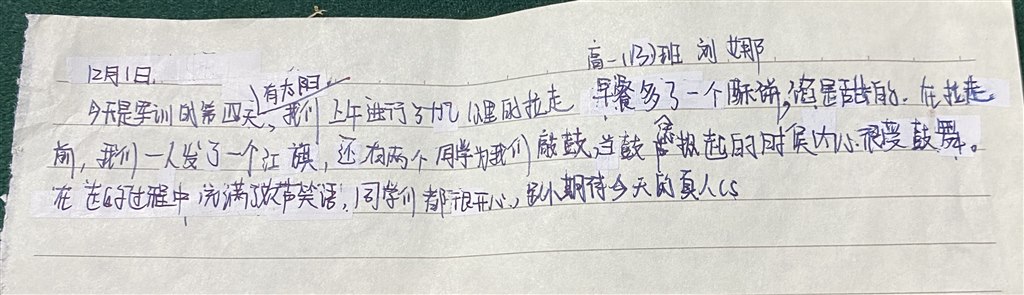 高一(13)班 刘娜
12月1日.
有太阳
今天是军训的第四天,我们上午进行了九公里的拉走 早餐多了一个酥饼,但是甜的. 在拉走
前,我们一人发了一个红旗,还有两个同学为我们敲鼓,当鼓响起的时候内心很受鼓舞。
在走的过程中充满了欢声笑语,同学们都很开心,期待今天的真人CS